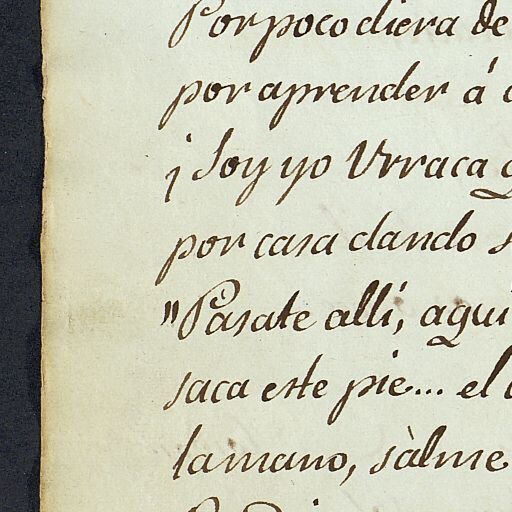 Por poco diera de
por aprender á
¡Soy yo Urraca
por casa dando
"Pàsate allí, aqui
saca este pie... el
la mano, sàlme